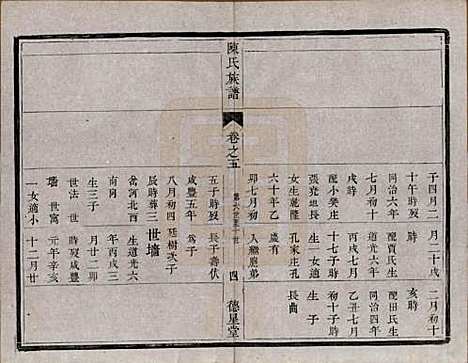 子四月二 月二十戌 二月初十
十午時 時 亥時
同治六年 配賈氏生 配田氏生
戌時 道光六年 同治四年
配小婁庄 丙戌七月 乙丑七月
張堯坦長 十七子時 初十子時
女生乾隆 子一女適 生子
六十年乙 孔家庄孔 長崗
卯七月初 入繼應弟
陳氏族譜
卷之五
四
德星堂
五子時歿 長子壽伏
咸豐五年
八月初四 廷樹次子
辰時葬三 世墻
河北西 生道光六
南岡 年丙戌三
生三子 月廿二卯
世法 世 時歿咸豐
墻 世寓 元年辛亥
一女適小 十二月廿